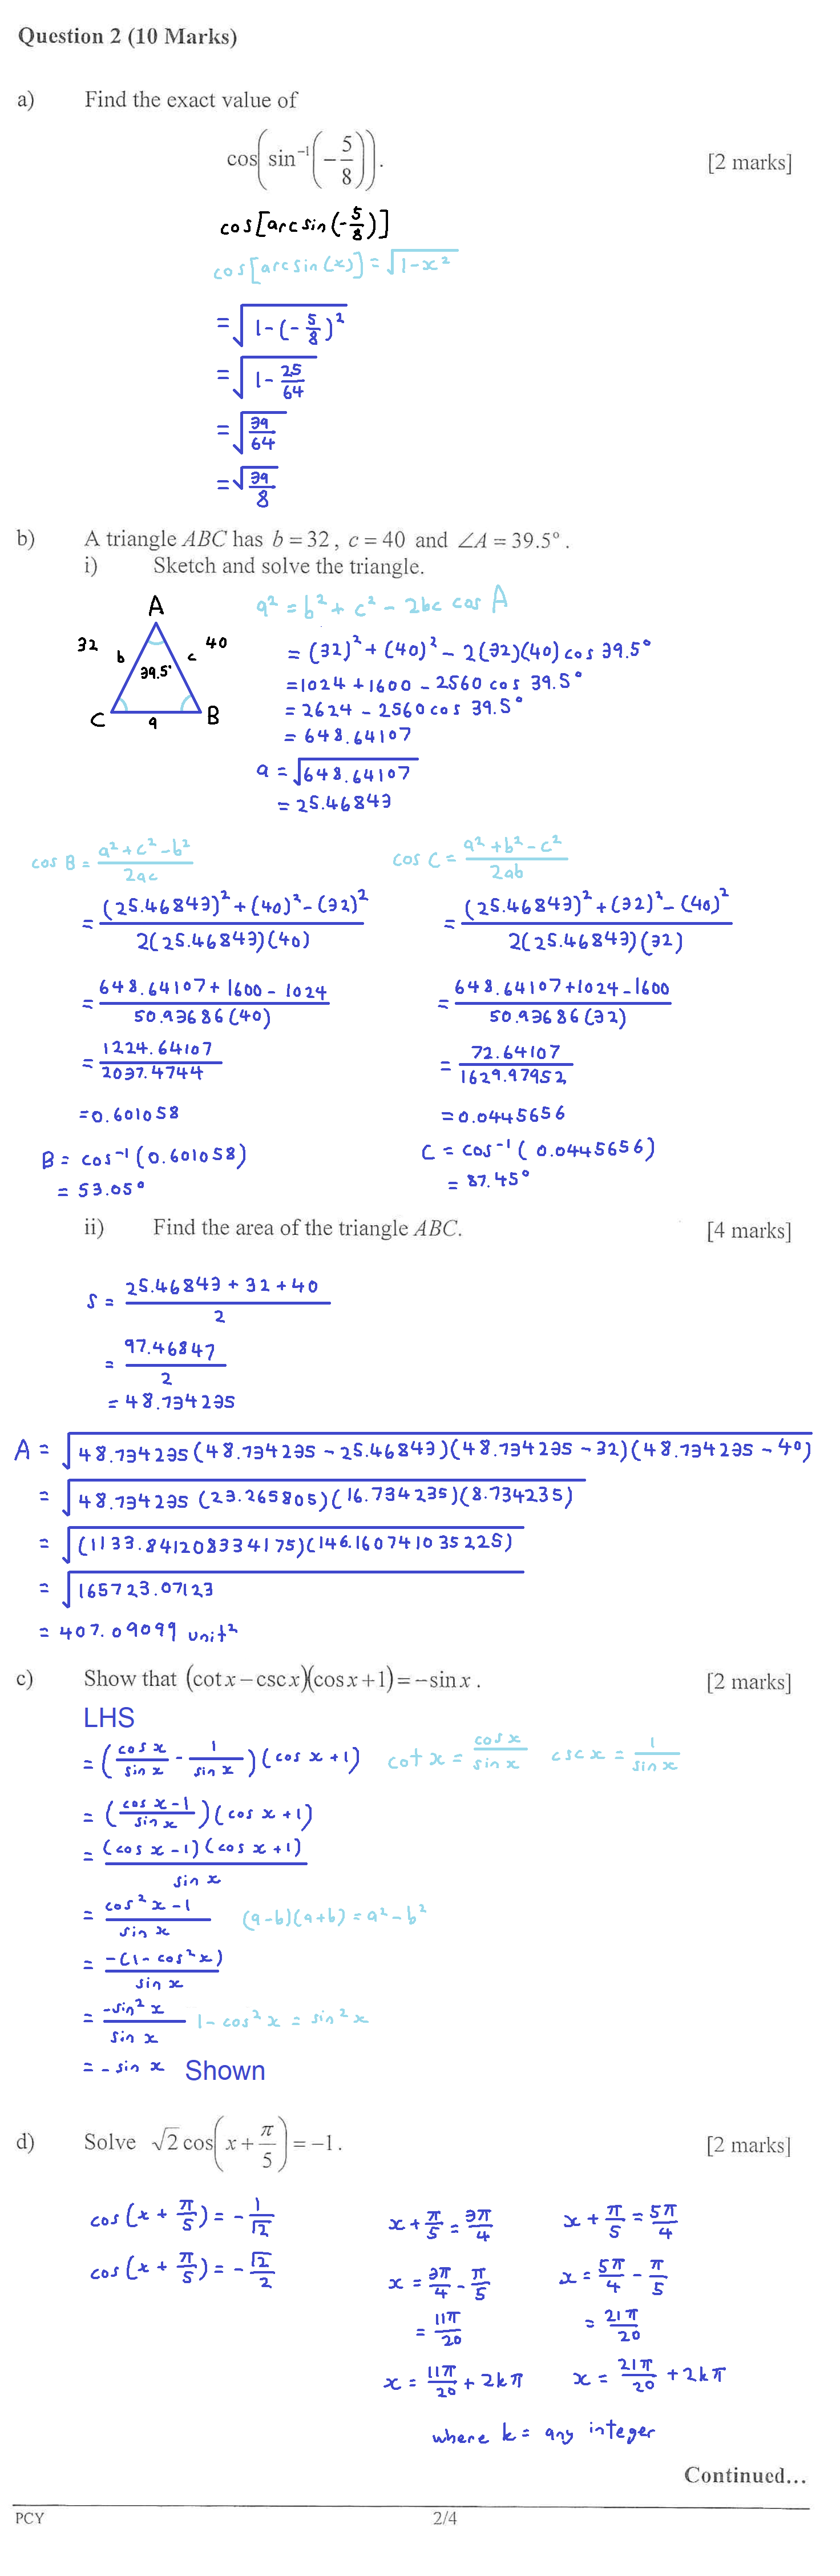 Question 2 (10 Marks)
a) Find the exact value of
cos(sin⁻¹(-5/8)). [2 marks]
cos[arcsin(-5/8)]
cos[arcsin(x)] = √(1-x²)
= √(1-(-5/8)²)
= √(1-25/64)
= √(39/64)
= √(39/8)
b) A triangle ABC has b = 32, c = 40 and ∠A = 39.5°.
i) Sketch and solve the triangle.
A
32 b 39.5° c 40
C a B
a² = b² + c² - 2bc cos A
= (32)² + (40)² - 2(32)(40) cos 39.5°
= 1024 + 1600 - 2560 cos 39.5°
= 2624 - 2560 cos 39.5°
= 648.64107
a = √648.64107
= 25.46843
cos B = (a² + c² - b²)/(2ac)
= ((25.46843)² + (40)² - (32)²)/(2(25.46843)(40))
= (648.64107 + 1600 - 1024)/(50.93686(40))
= 1224.64107/2037.4744
= 0.601058
B = cos⁻¹(0.601058)
= 53.05°
cos C = (a² + b² - c²)/(2ab)
= ((25.46843)² + (32)² - (40)²)/(2(25.46843)(32))
= (648.64107 + 1024 - 1600)/(50.93686(32))
= 72.64107/1629.97952
= 0.0445656
C = cos⁻¹(0.0445656)
= 87.45°
ii) Find the area of the triangle ABC. [4 marks]
s = (25.46843 + 32 + 40)/2
= 97.46847/2
= 48.734235
A = √(48.734235(48.734235 - 25.46843)(48.734235 - 32)(48.734235 - 40))
= √(48.734235(23.265805)(16.734235)(8.734235))
= √((1133.841208334175)(146.160741035225))
= √165723.07123
= 407.09099 unit²
c) Show that (cot x - csc x)(cos x + 1) = -sin x. [2 marks]
LHS
= (cos x/sin x - 1/sin x)(cos x + 1) cot x = cos x/sin x csc x = 1/sin x
= ((cos x - 1)/sin x)(cos x + 1)
= (cos x - 1)(cos x + 1)/sin x
= (cos² x - 1)/sin x (a-b)(a+b) = a² - b²
= -(1 - cos² x)/sin x
= -sin² x/sin x 1 - cos² x = sin² x
= - sin x Shown
d) Solve √2 cos(x + π/5) = -1. [2 marks]
cos(x + π/5) = -1/√2
cos(x + π/5) = -√2/2
x + π/5 = 3π/4
x = 3π/4 - π/5
= 11π/20
x = 11π/20 + 2kπ
x + π/5 = 5π/4
x = 5π/4 - π/5
= 21π/20
x = 21π/20 + 2kπ
where k = any integer
Continued...
PCY 2/4